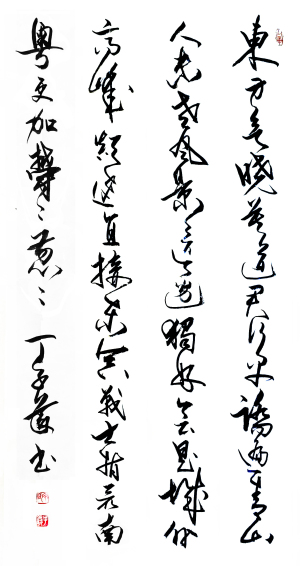 東方欲曉莫道君行早踏遍青山
人未老風景這邊獨好會昌城外
高峰顛連直接東溟戰士指看南
粵更加鬱々葱々 丁 書